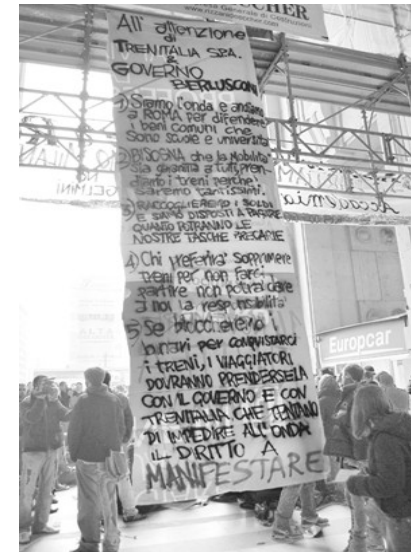 All' attenzione
di
TRENITALIA SPA.
&
GOVERNO
BERLUSCONI
1) Siamo l'onda e andiamo
a ROMA per difendere
i beni comuni che
sono scuole e università
2) BISOGNA che la Mobilità
sia garantita a tutti, pren-
diamo i treni perché
saremo tantissimi.
3) RACCOGLIEREMO I SOLDI
E SIAMO DISPOSTI A PAGARE
QUANTO POTRANNO LE
NOSTRE TASCHE PRECARIE
4) Chi preferirà sopprimere
treni per non farci
partire non potrà dare
a noi la responsabilità
5) Se bloccheremo i
binari per conquistarci
i TRENI, I VIAGGIATORI
DOVRANNO PRENDERSELA
CON IL GOVERNO E CON
TRENITALIA CHE TENTANO
DI IMPEDIRE ALL'ONDA
IL DIRITTO A
MANIFESTARE
GELMINI
Europcar